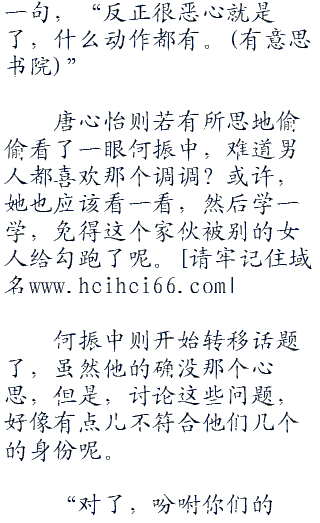 一句，“反正很恶心就是
了，什么动作都有。(有意思
书院)”
唐心怡则若有所思地偷
偷看了一眼何振中，难道男
人都喜欢那个调调？或许，
她也应该看一看，然后学一
学，免得这个家伙被别的女
人给勾跑了呢。[请牢记住域
名www.hcihci66.com|
何振中则开始转移话题
了，虽然他的确没那个心
思，但是，讨论这些问题，
好像有点儿不符合他们几个
的身份呢。
“对了，吩咐你们的